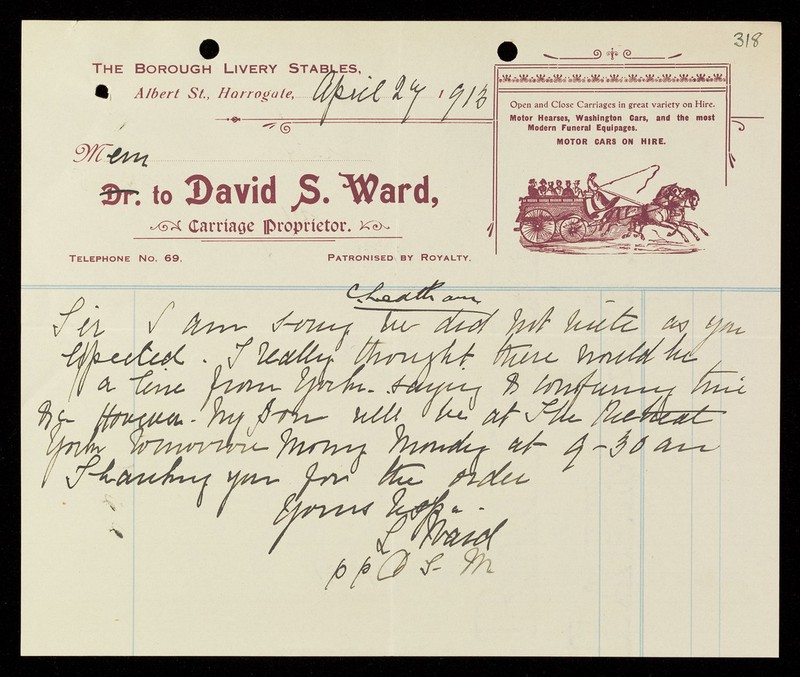 318
THE BOROUGH LIVERY STABLES,
Albert St., Harrogate, April 27 1913
Open and Close Carriages in great variety on Hire.
Motor Hearses, Washington Cars, and the most
Modern Funeral Equipages.
MOTOR CARS ON HIRE.
Mem
Dr. to David S. Ward,
Carriage Proprietor.
TELEPHONE NO. 69. PATRONISED BY ROYALTY.
Cheatham
Sir I am sorry we did not write as you
expected. I really thought there would be
a line from York saying & confirming time
&c However. My Son will be at The Retreat
York Tomorrow Morng Monday at 9-30 am
Thanking you for the order
Yours Resp
L Ward
pp D S